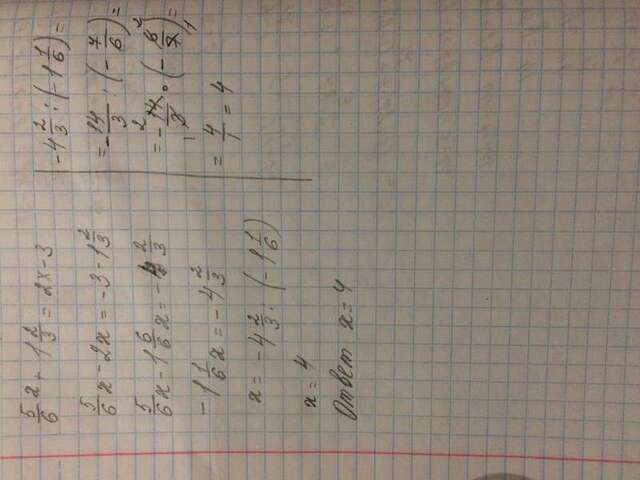 5/6 x + 1 2/3 = 2x - 3
5/6 x - 2x = -3 - 1 2/3
5/6 x - 1 6/6 x = -4 2/3
-1 1/6 x = -4 2/3
x = -4 2/3 : (-1 1/6)
x = 4
Ответ x = 4
-4 2/3 : (-1 1/6) =
= -14/3 : (-7/6) =
= -14/3 · (-6/7) =
= 4/1 = 4